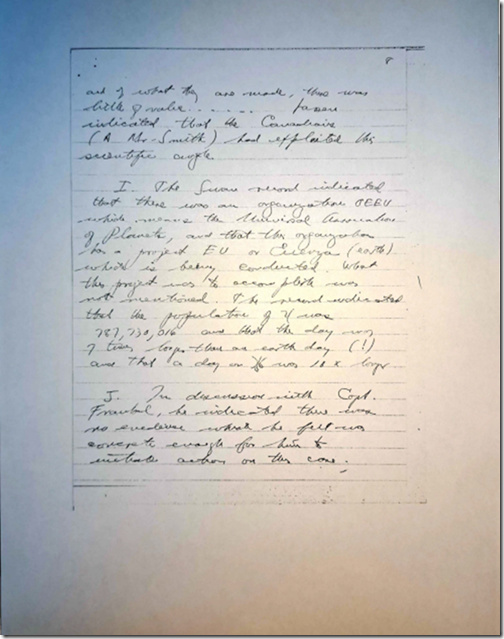 8
and of what they are made, there was
little of value . . . . . .
indicated that the Canadians
(A Mr. Smith) had exploited this
scientific angle
I. The Swan record indicated
that there was an organization OEEU
which means the Universal Association
of Planets, and that this organization
has a project EU or Euenza (earth)
which is being conducted. What
this project was to accomplish was
not mentioned. The record indicated
that the population of was
787,730,016 and that the day was
7 times longer than an earth day (!)
and that a day on was 18 x longer
J. In discussion with Capt.
Frankel, he indicated there was
no evidence which he felt was
concrete enough for him to
initiate action on this case.